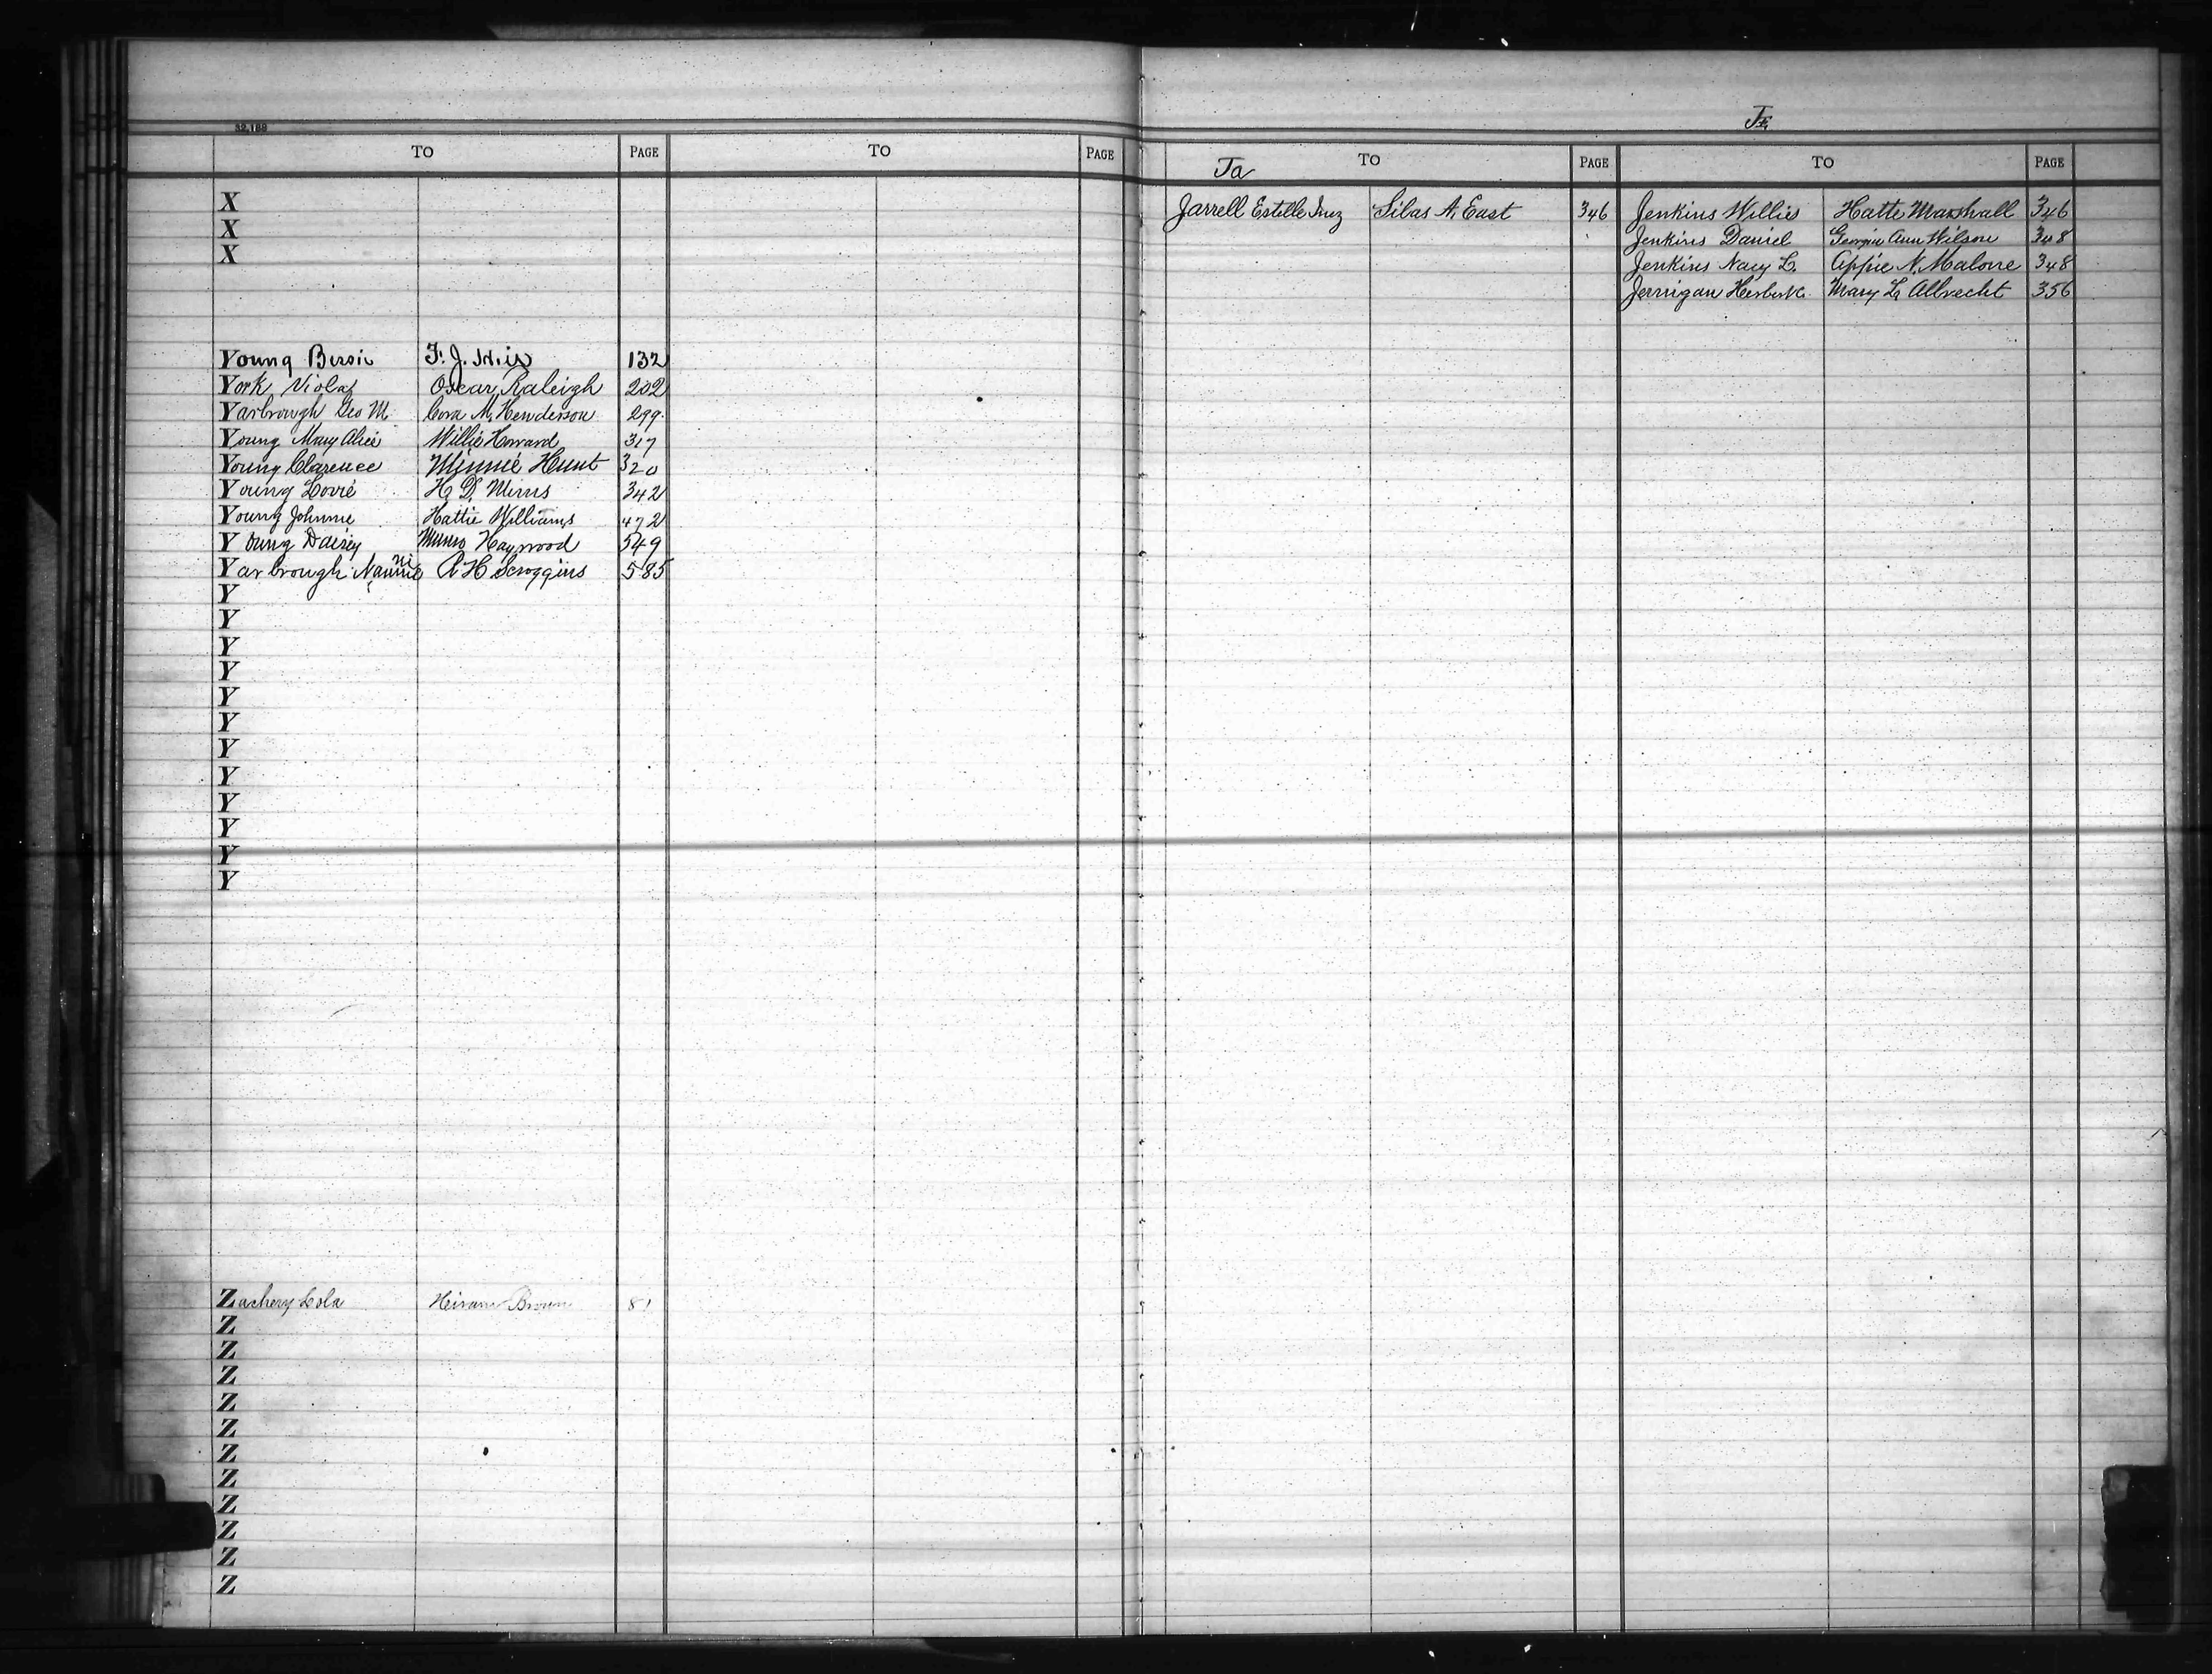 32,188
TO PAGE TO PAGE
X
X
X
Young Bessie F. J. 132
York Viola Oscar Raleigh 202
Yarbrough Geo M. Cora M. Henderson 299
Young Mary Alice Willie Howard 317
Young Clarence Minnie Hunt 320
Young Lovie H. D. Mims 342
Young Johnnie Hattie Williams 472
Young Daisey Haywood 549
Yarbrough Nannie A H Scroggins 585
Y
Y
Y
Y
Y
Y
Y
Y
Y
Y
Y
Y
Zachery Lola Heiram Brown 81
Z
Z
Z
Z
Z
Z
Z
Z
Z
Z
Z
Je
Ja TO PAGE TO PAGE
Jarrell Estelle Inez Silas A. East 346 Jenkins Willies Hatte Marshall 346
Jenkins Daniel Georgia Ann Wilson 348
Jenkins Nacy L. Appie N. Malone 348
Jernigan Mary L. Albrecht 356